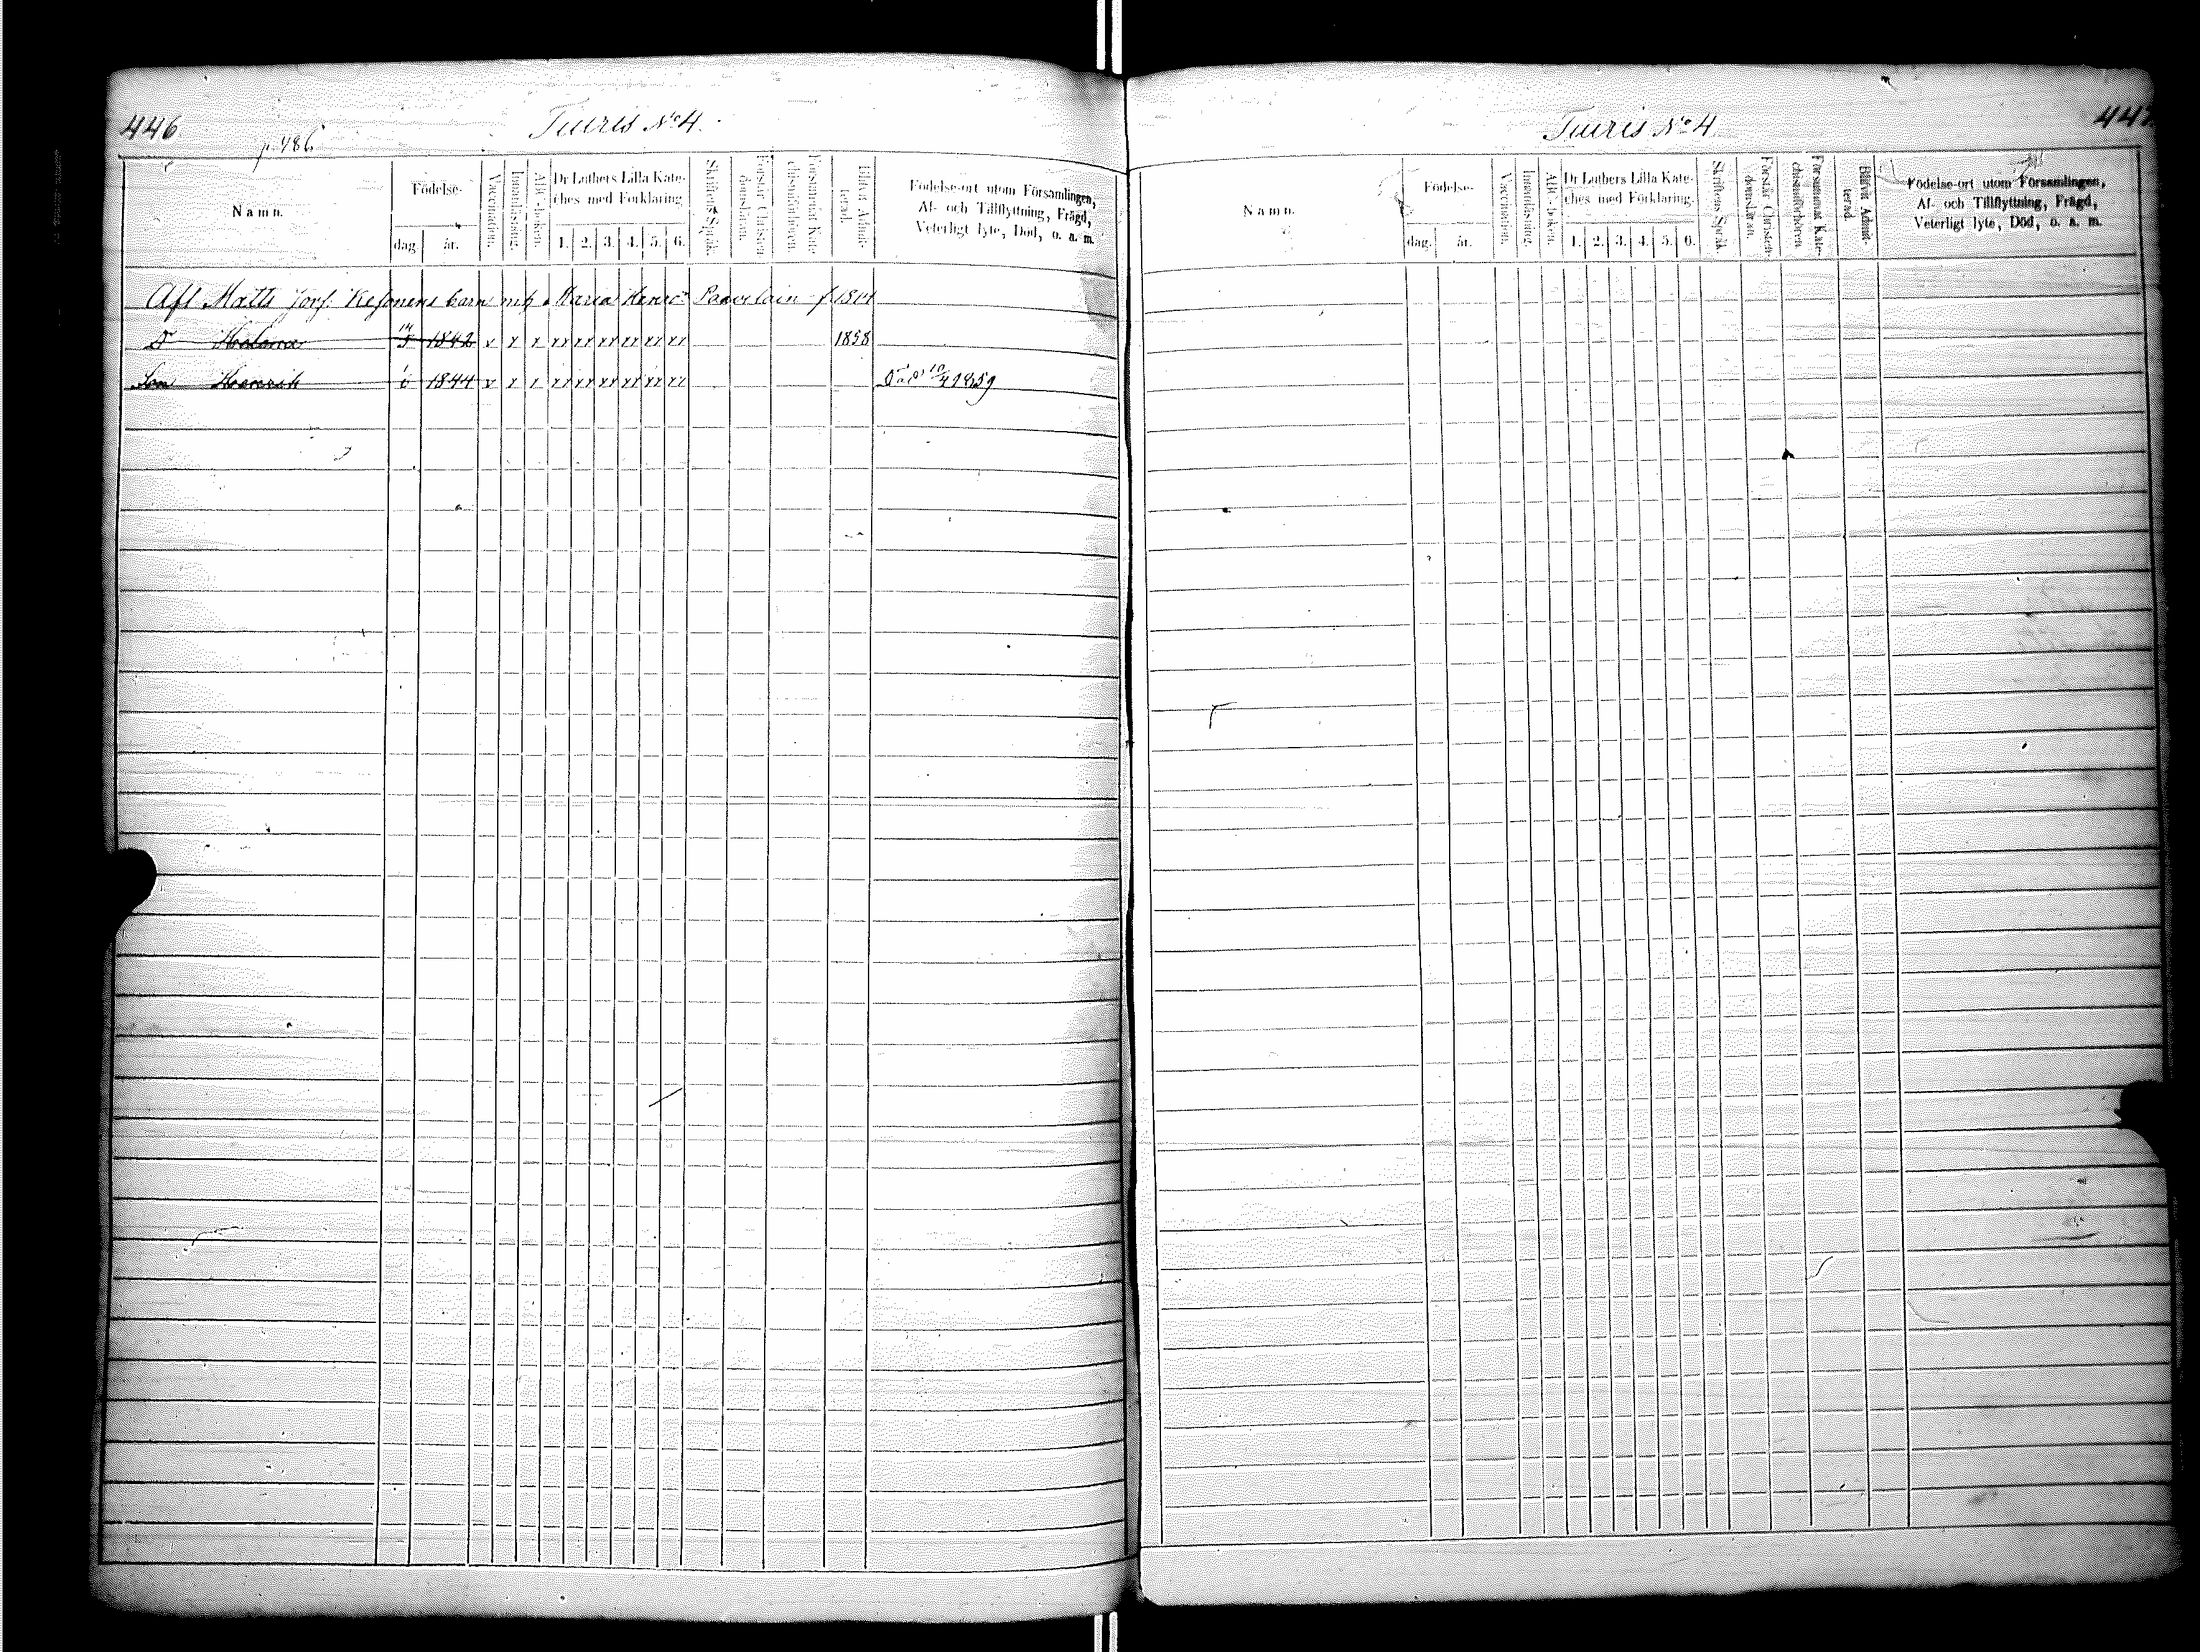 446
p 486
Tiuris No 4.
Namn.
Födelse-
dag. år.
Vaccination.
Innanläsning.
ABC-boken.
Dr Luthers Lilla Kate-
ches med Förklaring.
1. 2. 3. 4. 5. 6.
Skriftens Språk.
Förstår Christen-
domsläran.
Försummat Kate-
chismiförhören.
Blifvit Admit-
terad.
Födelse-ort utom Församlingen,
Af- och Tillflyttning, Frägd,
Veterligt lyte, Död, o. a. m.
Afl Matts Jos. Kesonens barn m Maria Henr Paavolain f. 1814
Dr Helena 14/3 1842 x x x xx xx xx xx xx xx 1858
Son Henrik 1/6 1844 x x x xx xx xx xx xx xx Död 10/4 1859
447
Tiuris No 4
Namn.
Födelse-
dag. år.
Vaccination.
Innanläsning.
ABC-boken.
Dr Luthers Lilla Kate-
ches med Förklaring.
1. 2. 3. 4. 5. 6.
Skriftens Språk.
Förstår Christen-
domsläran.
Försummat Kate-
chismiförhören.
Blifvit Admit-
terad.
Födelse-ort utom Församlingen,
Af- och Tillflyttning, Frägd,
Veterligt lyte, Död, o. a. m.